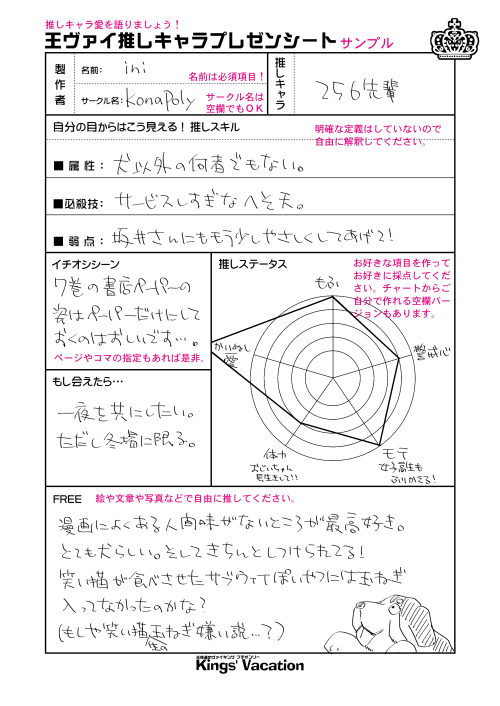 推しキャラ愛を語りましょう！
王ヴァイ推しキャラプレゼンシート サンプル
製作者
名前： ini
名前は必須項目！
サークル名： KonaPoly
サークル名は
空欄でもＯＫ
推しキャラ
256先輩
自分の目からはこう見える！ 推しスキル
明確な定義はしていないので
自由に解釈してください。
■ 属 性： 犬以外の何者でもない。
■必殺技： サービスしすぎなへそ天。
■ 弱 点： 坂井さんにももう少しやさしくしてあげて！
イチオシシーン
7巻の書店ペーパーの
姿はペーパーだけにして
おくのはおしいです…。
ページやコマの指定もあれば是非。
もし会えたら…
一夜を共にしたい。
ただし冬場に限る。
推しステータス
お好きな項目を作って
お好きに採点してくだ
さい。チャートからご
自分で作れる空欄バー
ジョンもあります。
もふい
警戒心
モテ
女子高生も
体力
おじいちゃん
かいぬし
愛
FREE 絵や文章や写真などで自由に推してください。
漫画によくある人間味がないところが最高好き。
とても犬らしい。そしてきちんとしつけられてる！
笑い猫が食べさせたサブウェイっぽいやつには玉ねぎ
入ってなかったのかな？
(もしや笑い猫生の玉ねぎ嫌い説…？)
王様達のヴァイキング プチオンリー
Kings' Vacation